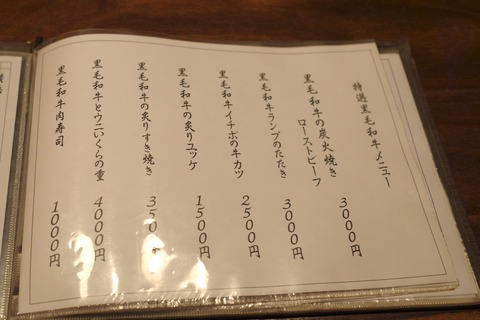 特選黒毛和牛メニュー
黒毛和牛の炭火焼き
ローストビーフ
3000円
黒毛和牛ランプのたたき
3000円
黒毛和牛イチボの牛カツ
2500円
黒毛和牛の炙りユッケ
1500円
黒毛和牛の炙りすき焼き
350 円
黒毛和牛とウニいくらの重
4000円
黒毛和牛肉寿司
1000円